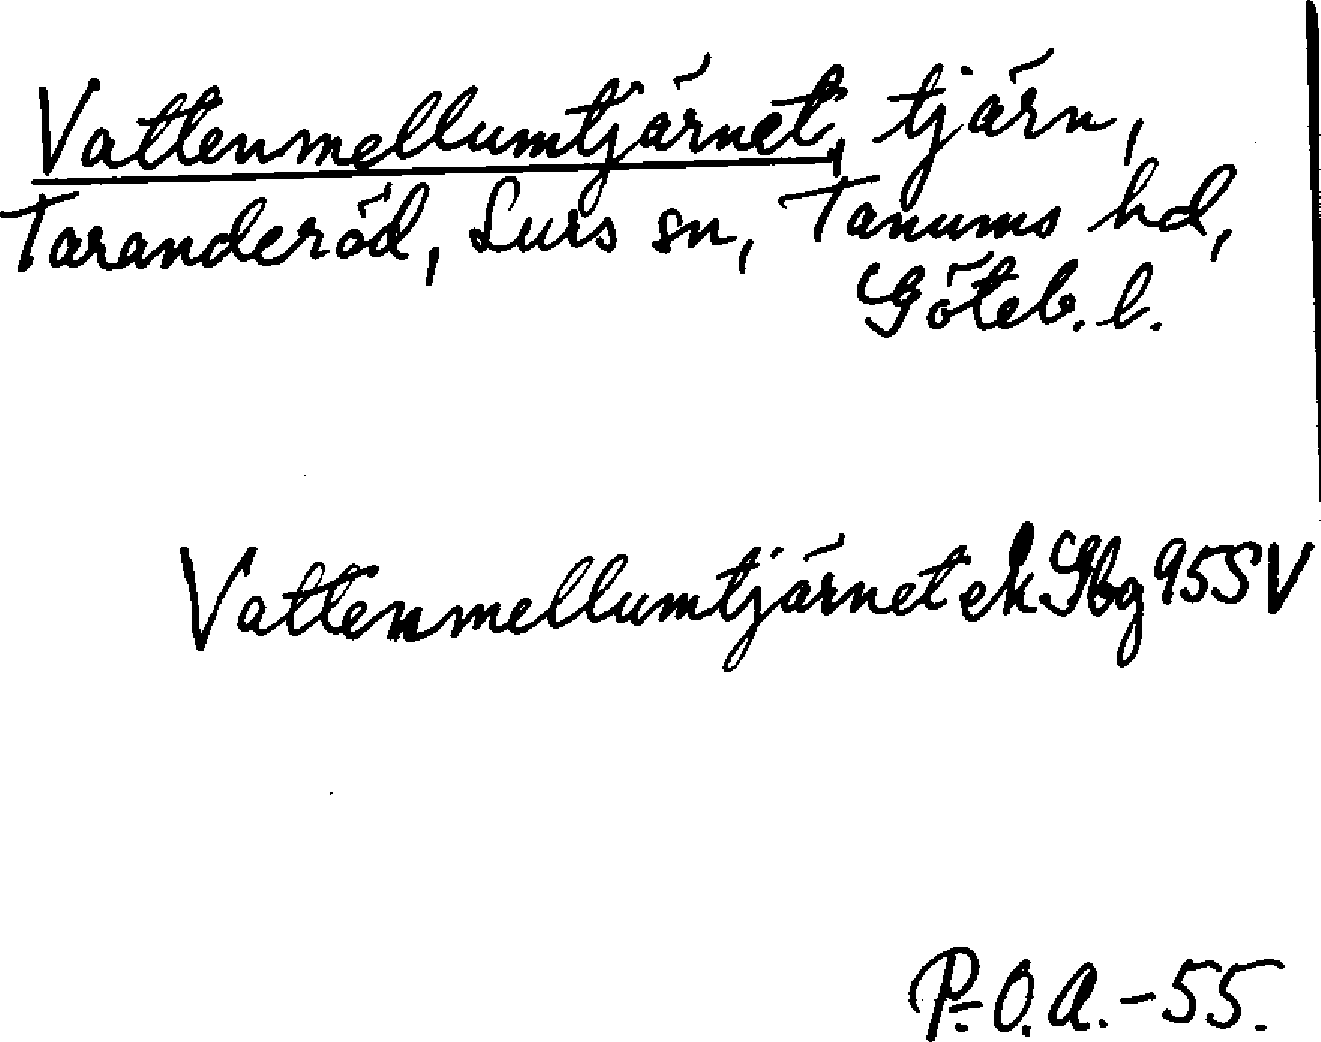 Vattenmellumtjärnet, tjärn,
Taranderöd, Lurs sn, Tanums hd,
Göteb. l.
Vattenmellumtjärnet ek Gbg 95 SV
P.-O.A.-55.